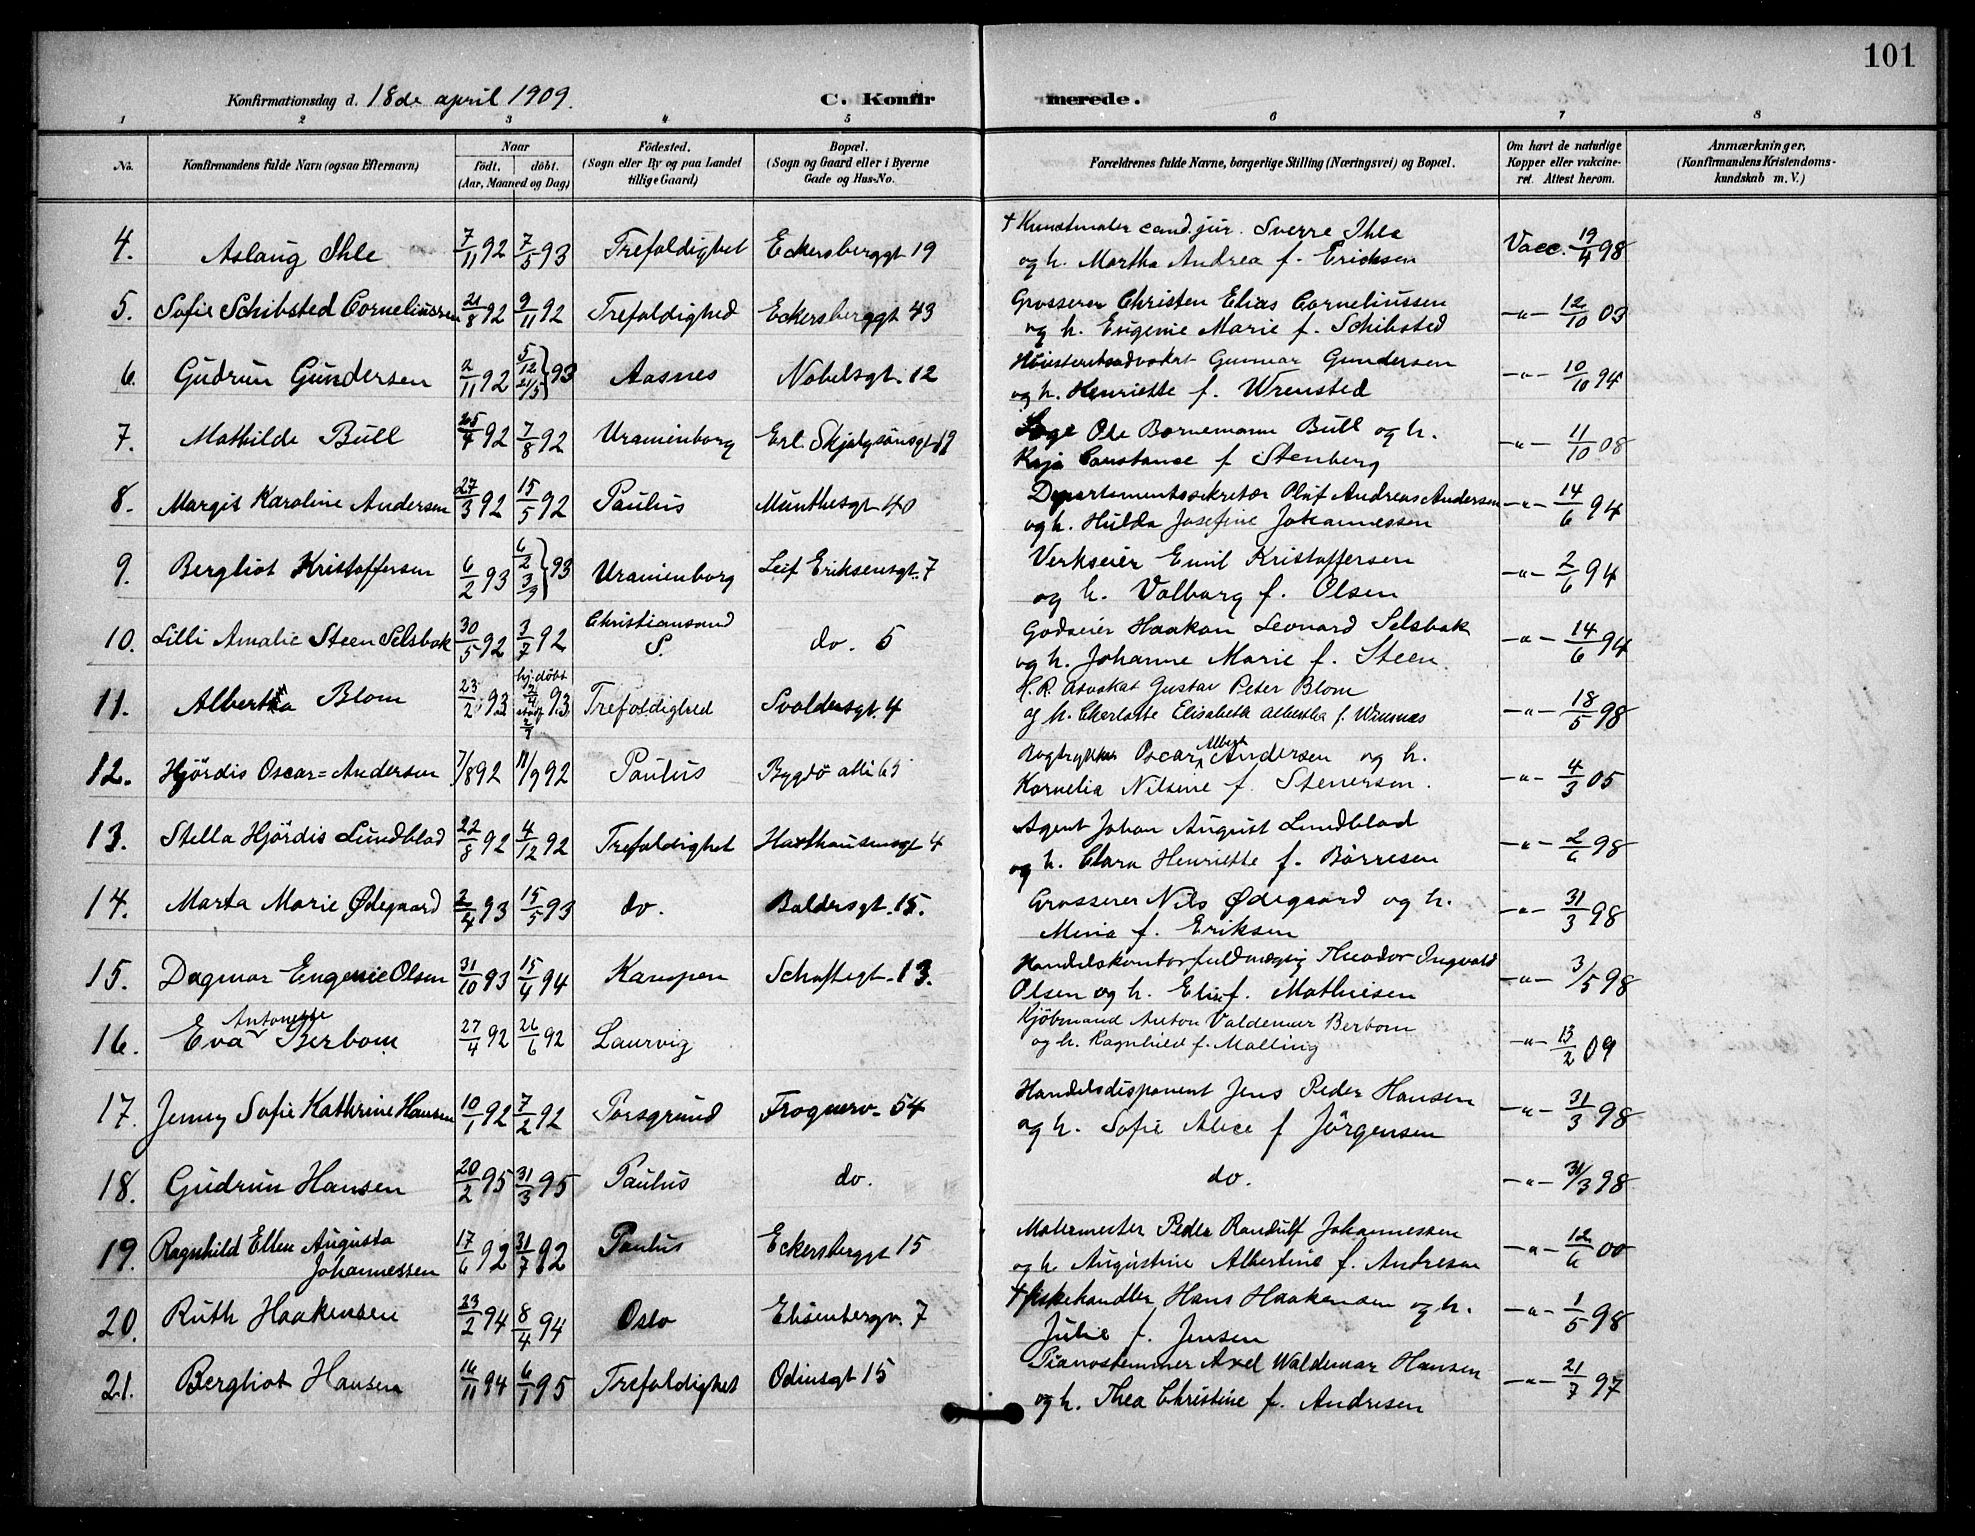 101
Konfirmationsdag d. 18de april 1909. C. Konfirmerede.
1 2 3 4 5 6 7 8
No. Konfirmandens fulde Navn (ogsaa Efternavn) Naar født. døbt. (Aar, Maaned og Dag) Fødested. (Sogn eller By og paa Landet tillige Gaard) Bopæl. (Sogn og Gaard eller i Byerne Gade og Hus-No. Forældrenes fulde Navne, borgerlige Stilling (Næringsvei) og Bopæl. Om havt de naturlige Kopper eller vakcineret. Attest herom. Anmærkninger. (Konfirmandens Kristendomskundskab m. V.)
4. Aslaug Ihle 7/11 92 7/5 93 Trefoldighet Eckersberggt 19 † Kunstmaler cand. jur. Sverre Ihle
og h. Martha Andrea f. Ericksen Vacc. 19/4 98
5. Sofie Schibsted Corneliussen 21/8 92 9/11 92 Trefoldighed Eckersberggt 43 Grosserer Christen Elias Corneliussen
og h. Eugenie Marie f. Schibsted -"- 12/10 03
6. Gudrun Gundersen 2/11 92 5/12 21/5 } 93 Aasnes Nobelsgt. 12 Høiesteretsadvokat Gunnar Gundersen
og h. Henriette f. Wrensted -"- 10/10 94
7. Mathilde Bull 25/4 92 7/8 92 Uranienborg Erl. Skjalgsønsgt 19 Læge Ole Bornemann Bull og h.
Kaja Constance f Stenberg -"- 11/10 08
8. Margit Karoline Andersen 27/3 92 15/5 92 Paulus Munthesgt 40 Departementssekretær Oluf Andreas Andersen
og h. Hulda Josefine Johannessen -"- 14/6 94
9. Bergliot Kristoffersen 6/2 93 6/2 3/9 } 93 Uranienborg Leif Eriksensgt. 7 Verkseier Emil Kristoffersen
og h. Valborg f. Olsen -"- 2/6 94
10. Lilli Amalie Steen Selsbak 30/5 92 3/7 92 Christiansand S. do. 5 Godseier Haakon Leonard Selsbak
og h. Johanne Marie f. Steen. -"- 14/6 94
11. Alberta Blom 23/2 93 hj. døbt 2/4 93 Trefoldighed Svoldersgt. 4 H. R. advokat Gustav Peter Blom
og h. Charlotte Elisabeth Albertha f. -"- 18/5 98
12. Hjördis Oscar=Andersen 7/8 92 11/9 92 Paulus Bygdö alle 65 Bogtrykker Oscar Albert Andersen og h.
Kornelia Nilsine f. Stenersen. -"- 4/3 05
13. Stella Hjördis Lundblad 22/8 92 4/12 92 Trefoldighet Haxthausensgt 4 Agent Johan August Lundblad
og h. Clara Henriette f. Börresen -"- 2/6 98
14. Marta Marie Ødegaard 2/4 93 15/5 93 do. Baldersgt. 15. Grosserer Nils Ødegaard og h.
Mina f. Eriksen -"- 31/3 98
15. Dagmar Eugenie Olsen 31/10 93 15/4 94 Kampen Schaftegt. 13. Handelskontorfuldmægtig Theodor Ingvald
Olsen og h. Elise f. Mathiesen -"- 3/5 98
16. Eva Antonette Berbom 27/4 92 26/6 92 Laurvig Kjöbmand Anton Valdemar Berbom
og h. Ragnhild f. Malling -"- 13/2 09
17. Jenny Sofie Kathrine Hansen 10/1 92 7/2 92 Porsgrund Frognerv. 54 Handelsdisponent Jens Peder Hansen
og h. Sofie Alice f Jörgensen -"- 31/3 98
18. Gudrun Hansen 20/2 95 31/3 95 Paulus do. do. -"- 31/3 98
19. Ragnhild Ellen Augusta
Johannessen 17/6 92 31/7 92 Paulus Eckersberggt 15 Malermester Peder Randulf Johannessen
og h Augustine Albertine f. Andresen -"- 12/6 00
20. Ruth Haakensen 23/2 94 8/4 94 Oslo Elisenbergv. 7 † fiskehandler Hans Haakensen og h.
Julie f. Jensen -"- 1/5 98
21. Bergliot Hansen 16/11 94 6/1 95 Trefoldighet Odinsgt 15 Pianostemmer Axel Waldemar Hansen
og h. Thea Christine f. Andresen -"- 21/7 97